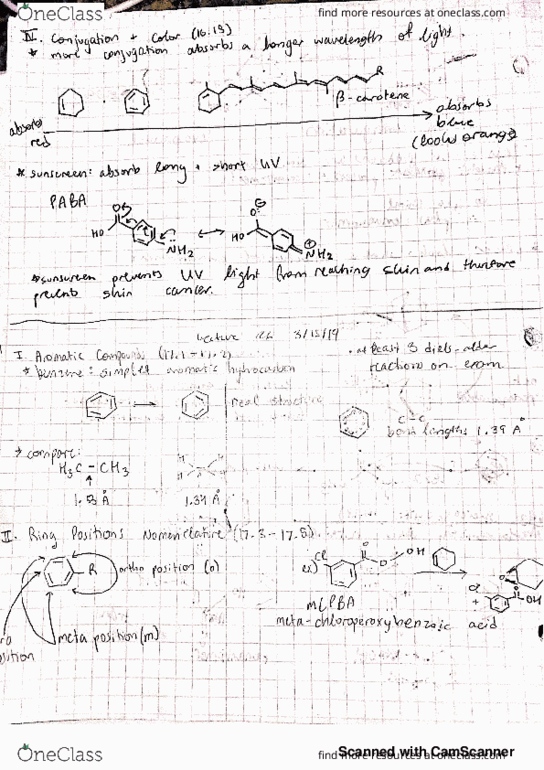 OneClass
find more resources at oneclass.com
IV. Conjugation + Color (16.13)
* more conjugation absorbs a longer wavelength of light.
R
β-carotene
absorbs
red
absorbs
blue
(looks orange)
* sunscreen: absorb long + short UV
PABA
HO
NH2
HO
NH2
* sunscreen prevents UV light from reaching skin and therefore
prevent skin cancer.
Lecture 3/13/19
I. Aromatic Compounds (17.1-17.2)
* benzene: simplest aromatic hydrocarbon
• at least 3 diels-alder
reactions on exam
real structure
C-C
bond lengths 1.39 Å
→ compare:
H3C-CH3
Å
1.34 Å
II. Ring Positions Nomenclature (17.3-17.5)
R
ortho position (o)
meta position (m)
ex)
Cl
O
OH
mCPBA
meta-chloroperoxybenzoic acid
Cl
+
OH
OneClass
find more resources at oneclass.com
Scanned with CamScanner